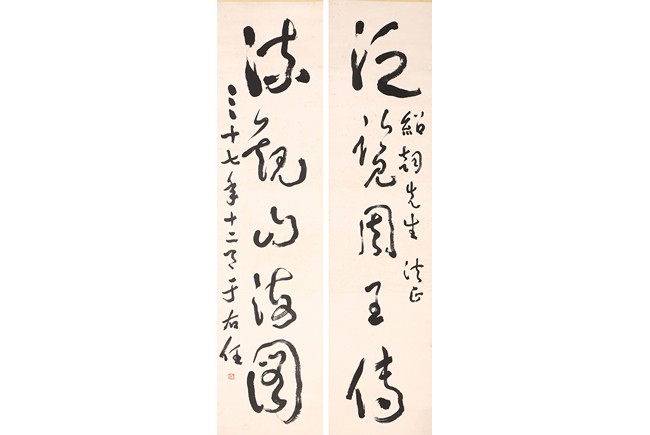 泛覽周王傳
紹朝先生法正
流觀山海圖
三十七年十二月于右任